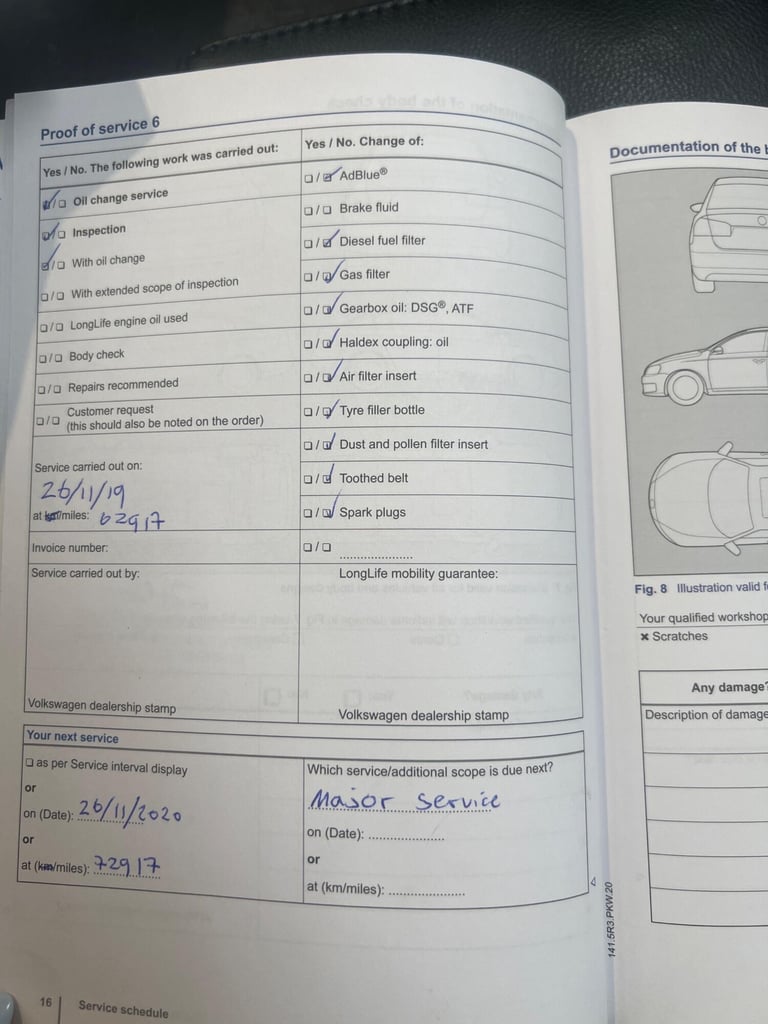 Proof of service 6
Yes / No. The following work was carried out:
☑/☐ Oil change service
☑/☐ Inspection
☑/☐ With oil change
☐/☐ With extended scope of inspection
☐/☐ LongLife engine oil used
☐/☐ Body check
☐/☐ Repairs recommended
☐/☐ Customer request
(this should also be noted on the order)
Service carried out on:
26/11/19
at km/miles: 62917
Invoice number:
Service carried out by:
Volkswagen dealership stamp
Yes / No. Change of:
☐/☑ AdBlue®
☐/☐ Brake fluid
☐/☑ Diesel fuel filter
☐/☑ Gas filter
☐/☑ Gearbox oil: DSG®, ATF
☐/☑ Haldex coupling: oil
☐/☑ Air filter insert
☐/☑ Tyre filler bottle
☐/☑ Dust and pollen filter insert
☐/☑ Toothed belt
☐/☑ Spark plugs
☐/☐ ....................
LongLife mobility guarantee:
Volkswagen dealership stamp
Your next service
☐ as per Service interval display
or
on (Date): 26/11/2020
or
at (km/miles): 72917
Which service/additional scope is due next?
Major service
on (Date): ....................
or
at (km/miles): ....................
16 Service schedule
141.5R3.PKW.20
Documentation of the
Fig. 8 Illustration valid
Your qualified workshop
✖ Scratches
Any damage?
Description of damage